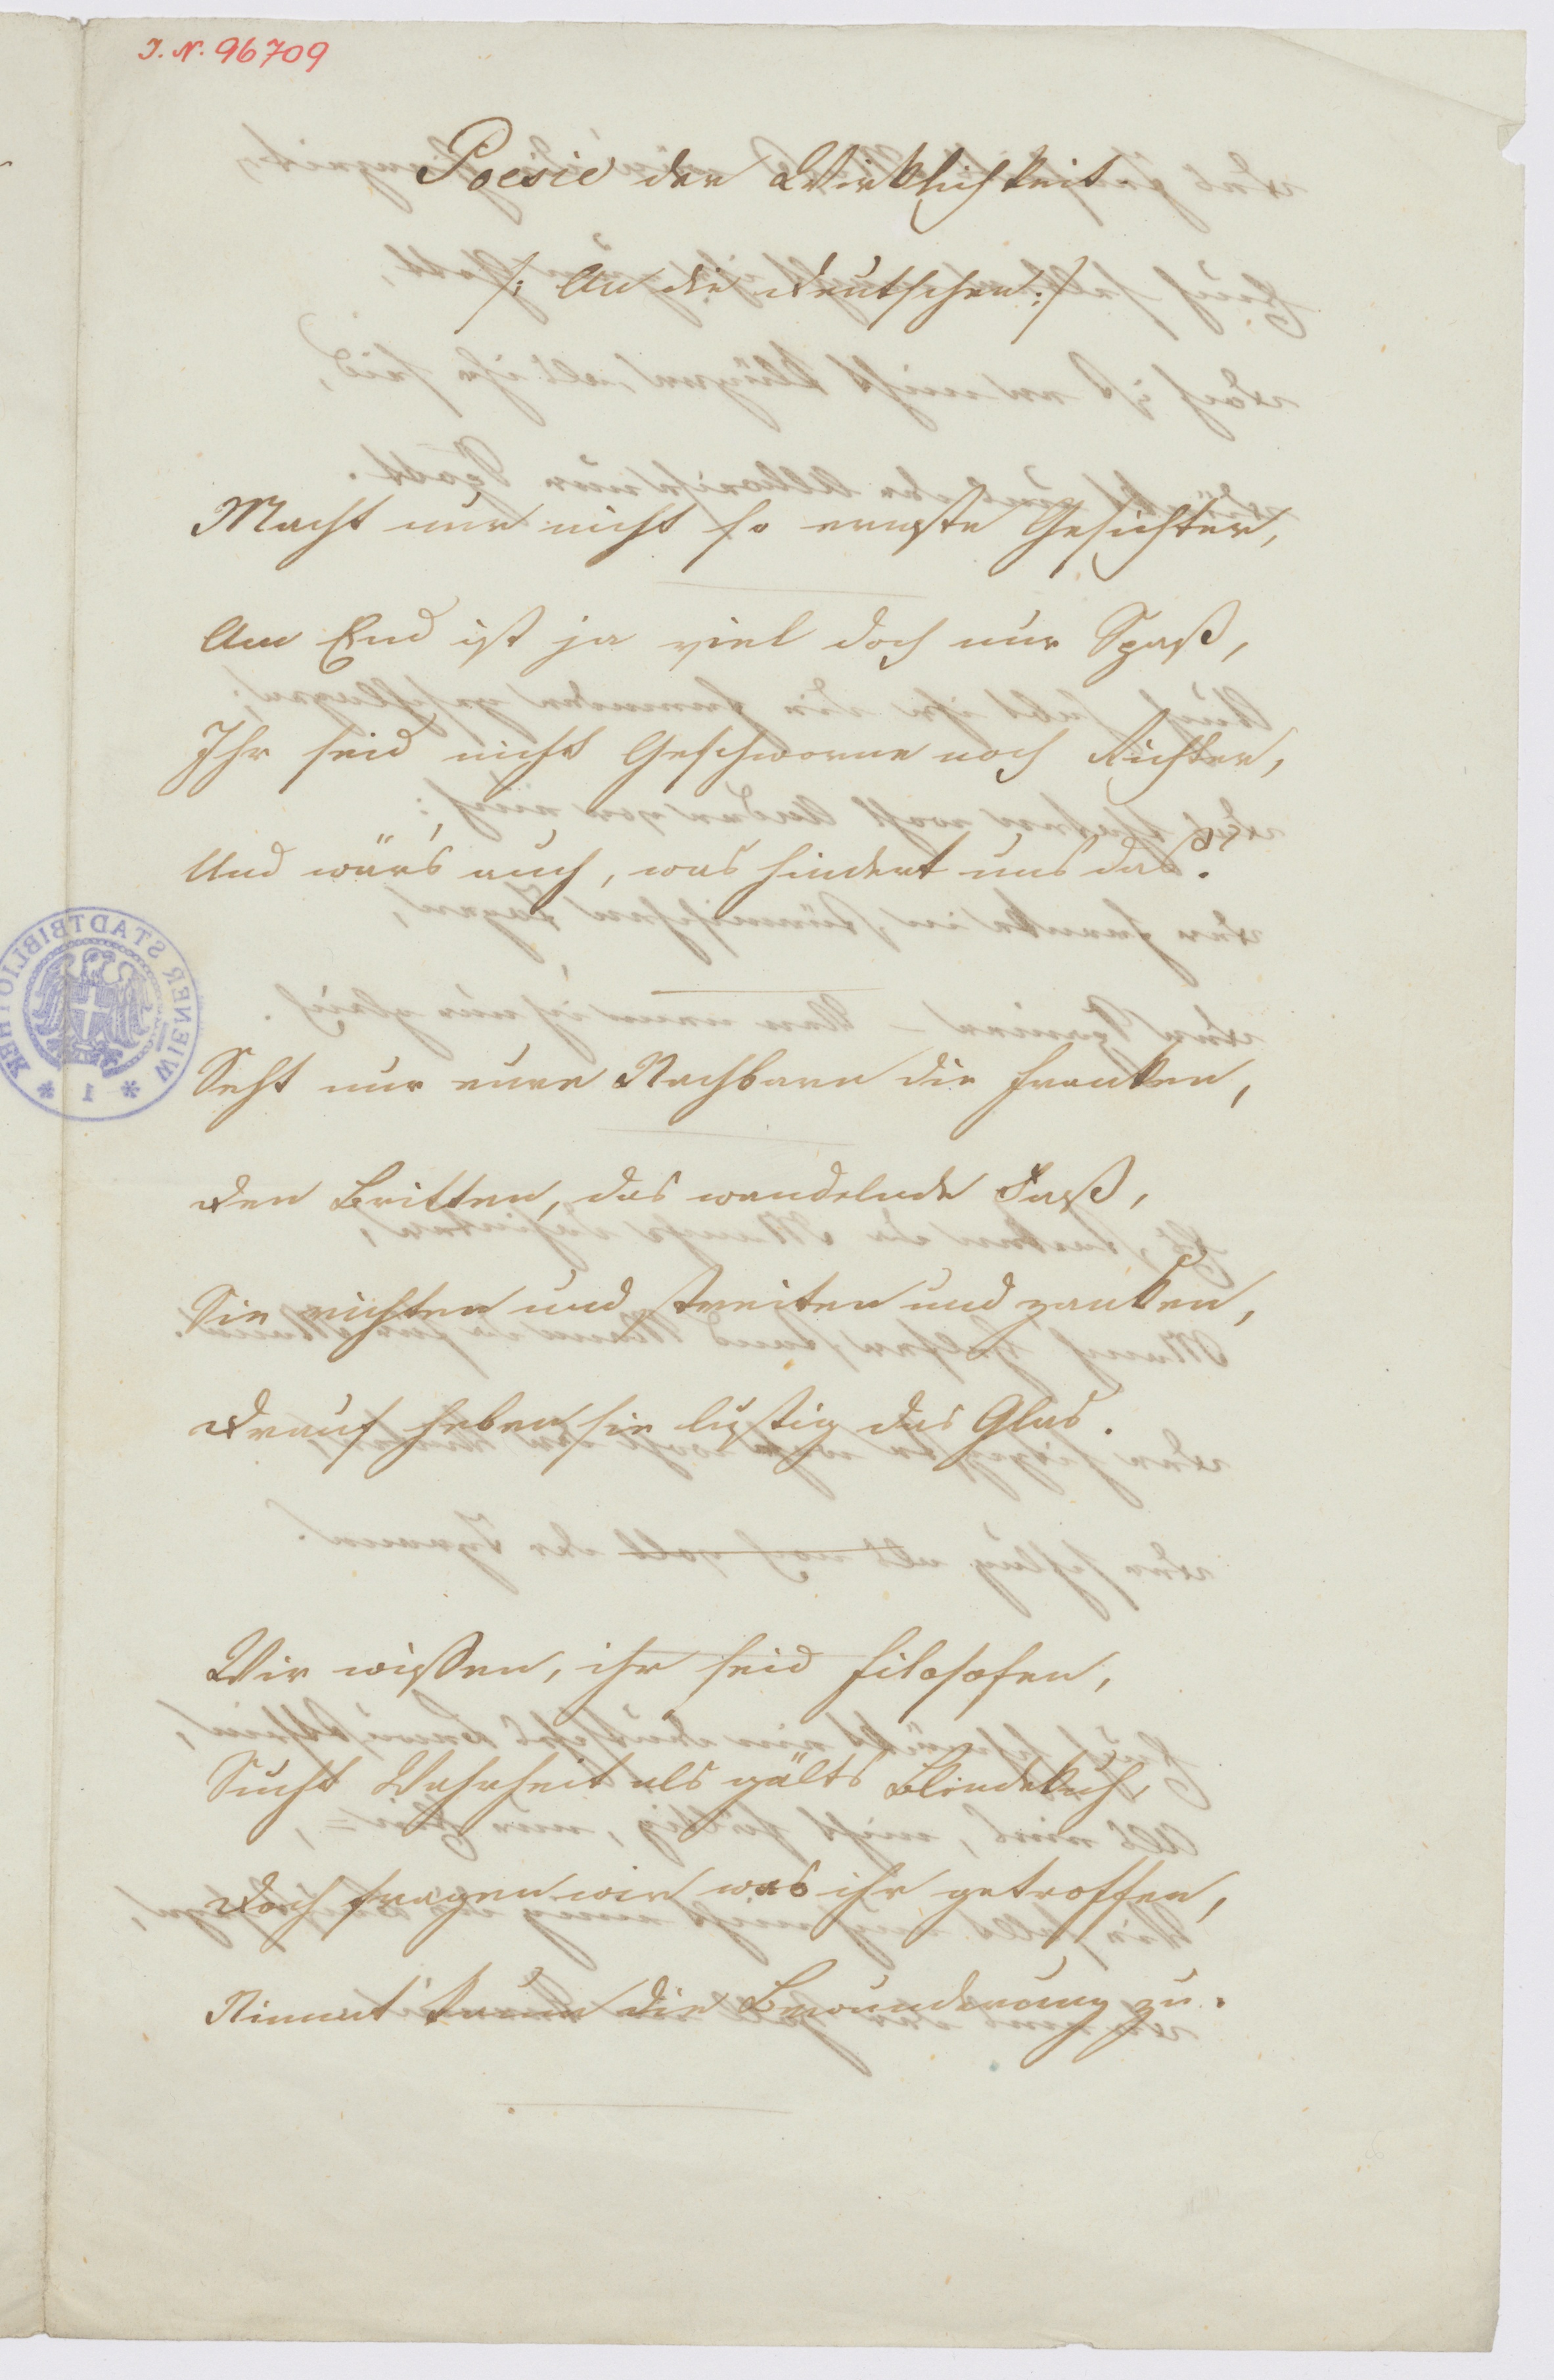 J. N. 96709
Poesie der Wirklichkeit
/: An die Deutschen :/
Macht nur nicht so ernste Gesichter,
Am End ist ja viel doch nur Spaß,
Ihr seid nicht Geschworne noch Richter,
Und wär's auch, was hindert uns das?
Seht nur eure Nachbarn die Franken,
Den Britten, das wandelnde Faß,
Sie richten und streiten und zanken,
Drauf heben sie lustig das Glas.
Wir wißen, ihr seid Filosofen,
Sucht Wahrheit als gälts Blindekuh,
Doch fragen wir was ihr getroffen,
Nimmt kaum die Bewunderung zu.
WIENER STADTBIBLIOTHEK
* 1 *